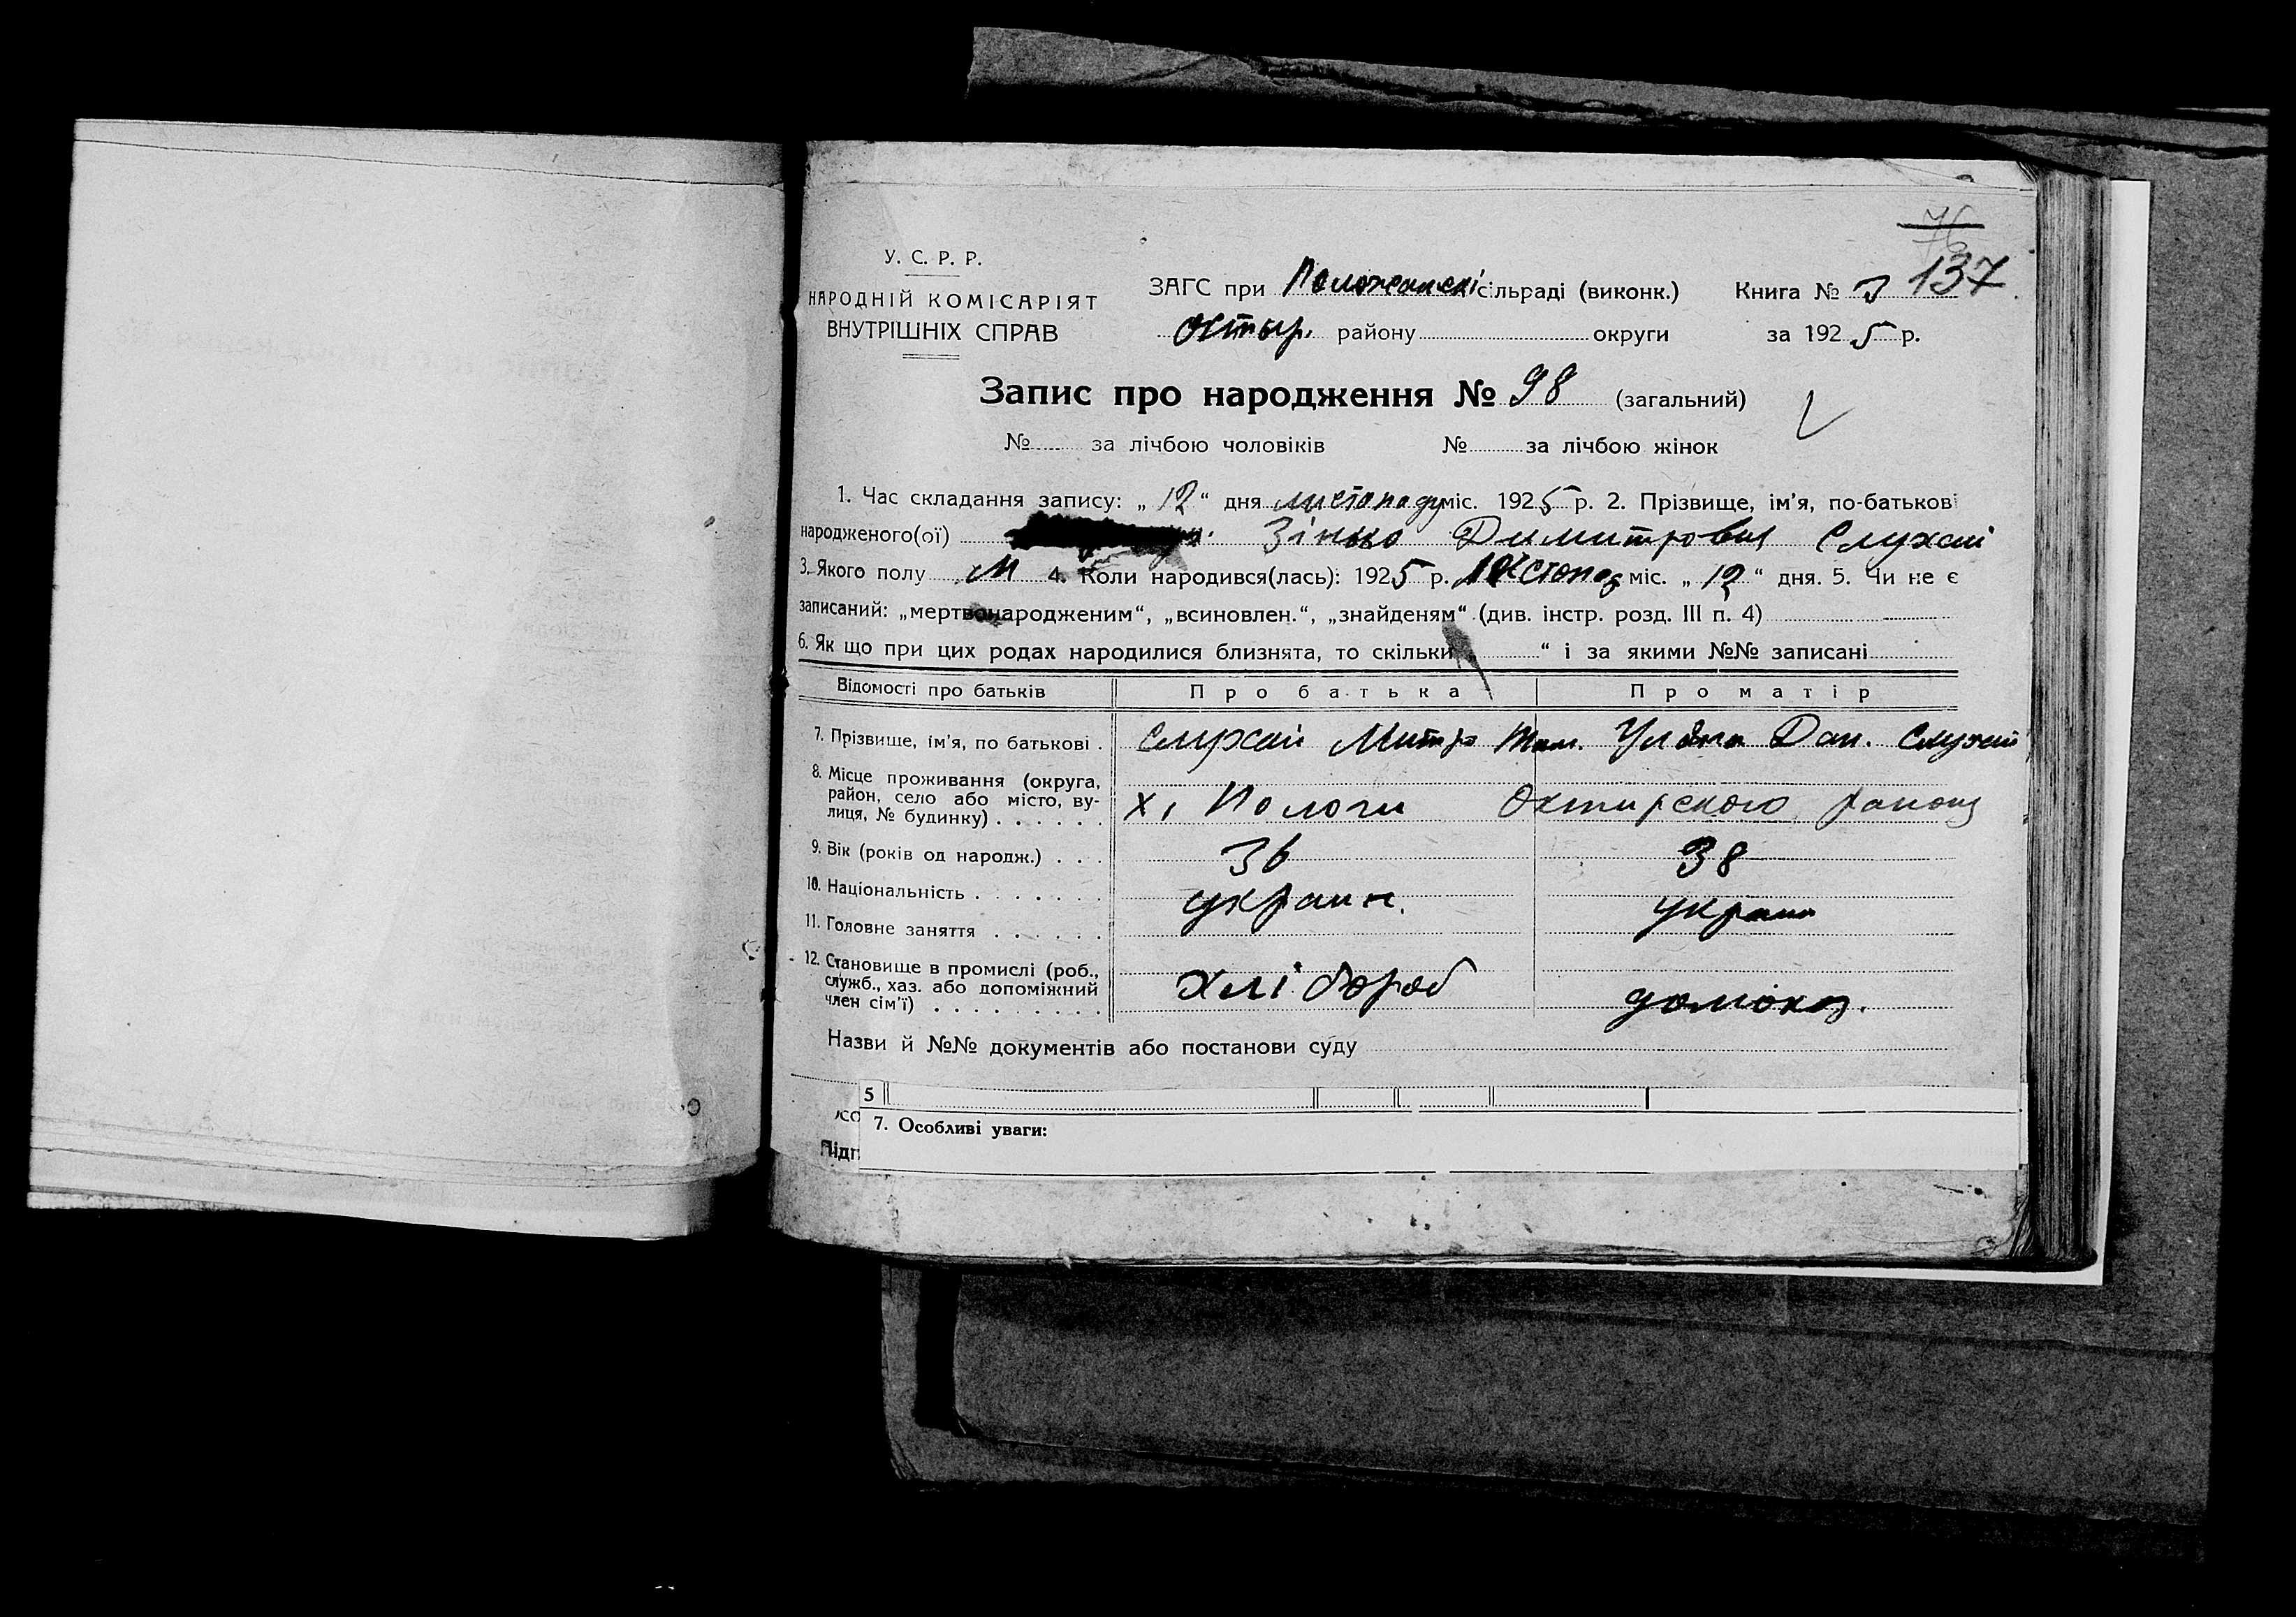 76
У. С. Р. Р.
НАРОДНІЙ КОМІСАРІЯТ
ВНУТРІШНІХ СПРАВ
ЗАГС при сільраді (виконк.) Книга № 3 137
Охтыр. району округи за 1925 р.
Запис про народження № 98 (загальний)
№ за лічбою чоловіків № за лічбою жінок
1. Час складання запису: „ 12 “ дня листопаду міс. 1925 р. 2. Прізвище, ім'я, по-батькові
народженого(ої) Зінько Димитрович Слухай
3. Якого полу М 4. Коли народився(лась): 1925 р. листопад міс. „ 12 “ дня. 5. Чи не є
записаний: „мертвонародженим“, „всиновлен.“, „знайденям“ (див. інстр. розд. III п. 4)
6. Як що при цих родах народилися близнята, то скільки „ “ і за якими №№ записані
Відомості про батьків Про батька Про матір
7. Прізвище, ім'я, по батькові . Слухай Митро Уляна Дан. Слухай
8. Місце проживання (округа,
район, село або місто, ву-
лиця, № будинку) . . . . . . х. Пологи Охтирского району
9. Вік (років од народж.) . . . 36 38
10. Національність . . . . . . . украин. украин
11. Головне заняття . . . . . .
12. Становище в промислі (роб.,
служб., хаз. або допоміжний
член сім'ї) . . . . . . . . . хлібороб домохоз.
Назви й №№ документів або постанови суду
5
7. Особливі уваги:
Підп